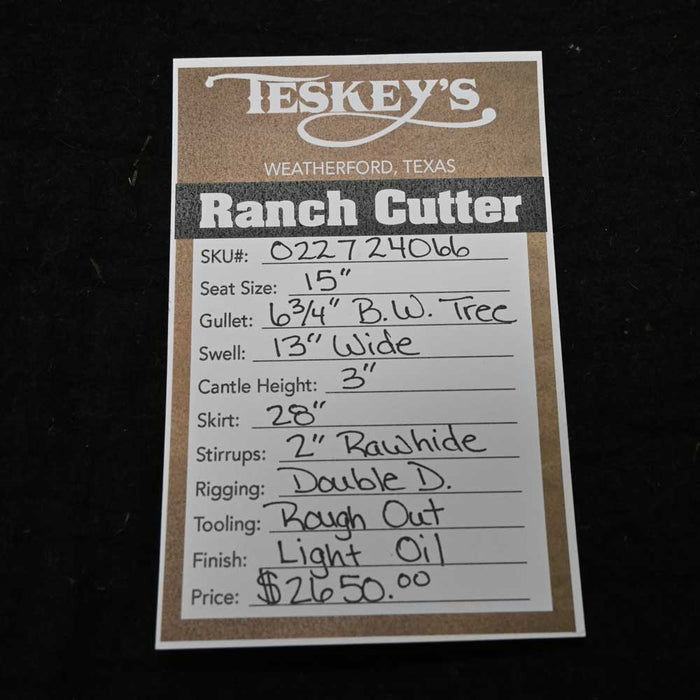 TESKEY'S
WEATHERFORD, TEXAS
Ranch Cutter
SKU#: 022724066
Seat Size: 15"
Gullet: 6 3/4" B.W. Tree
Swell: 13" Wide
Cantle Height: 3"
Skirt: 28"
Stirrups: 2" Rawhide
Rigging: Double D.
Tooling: Rough Out
Finish: Light Oil
Price: $2650.00